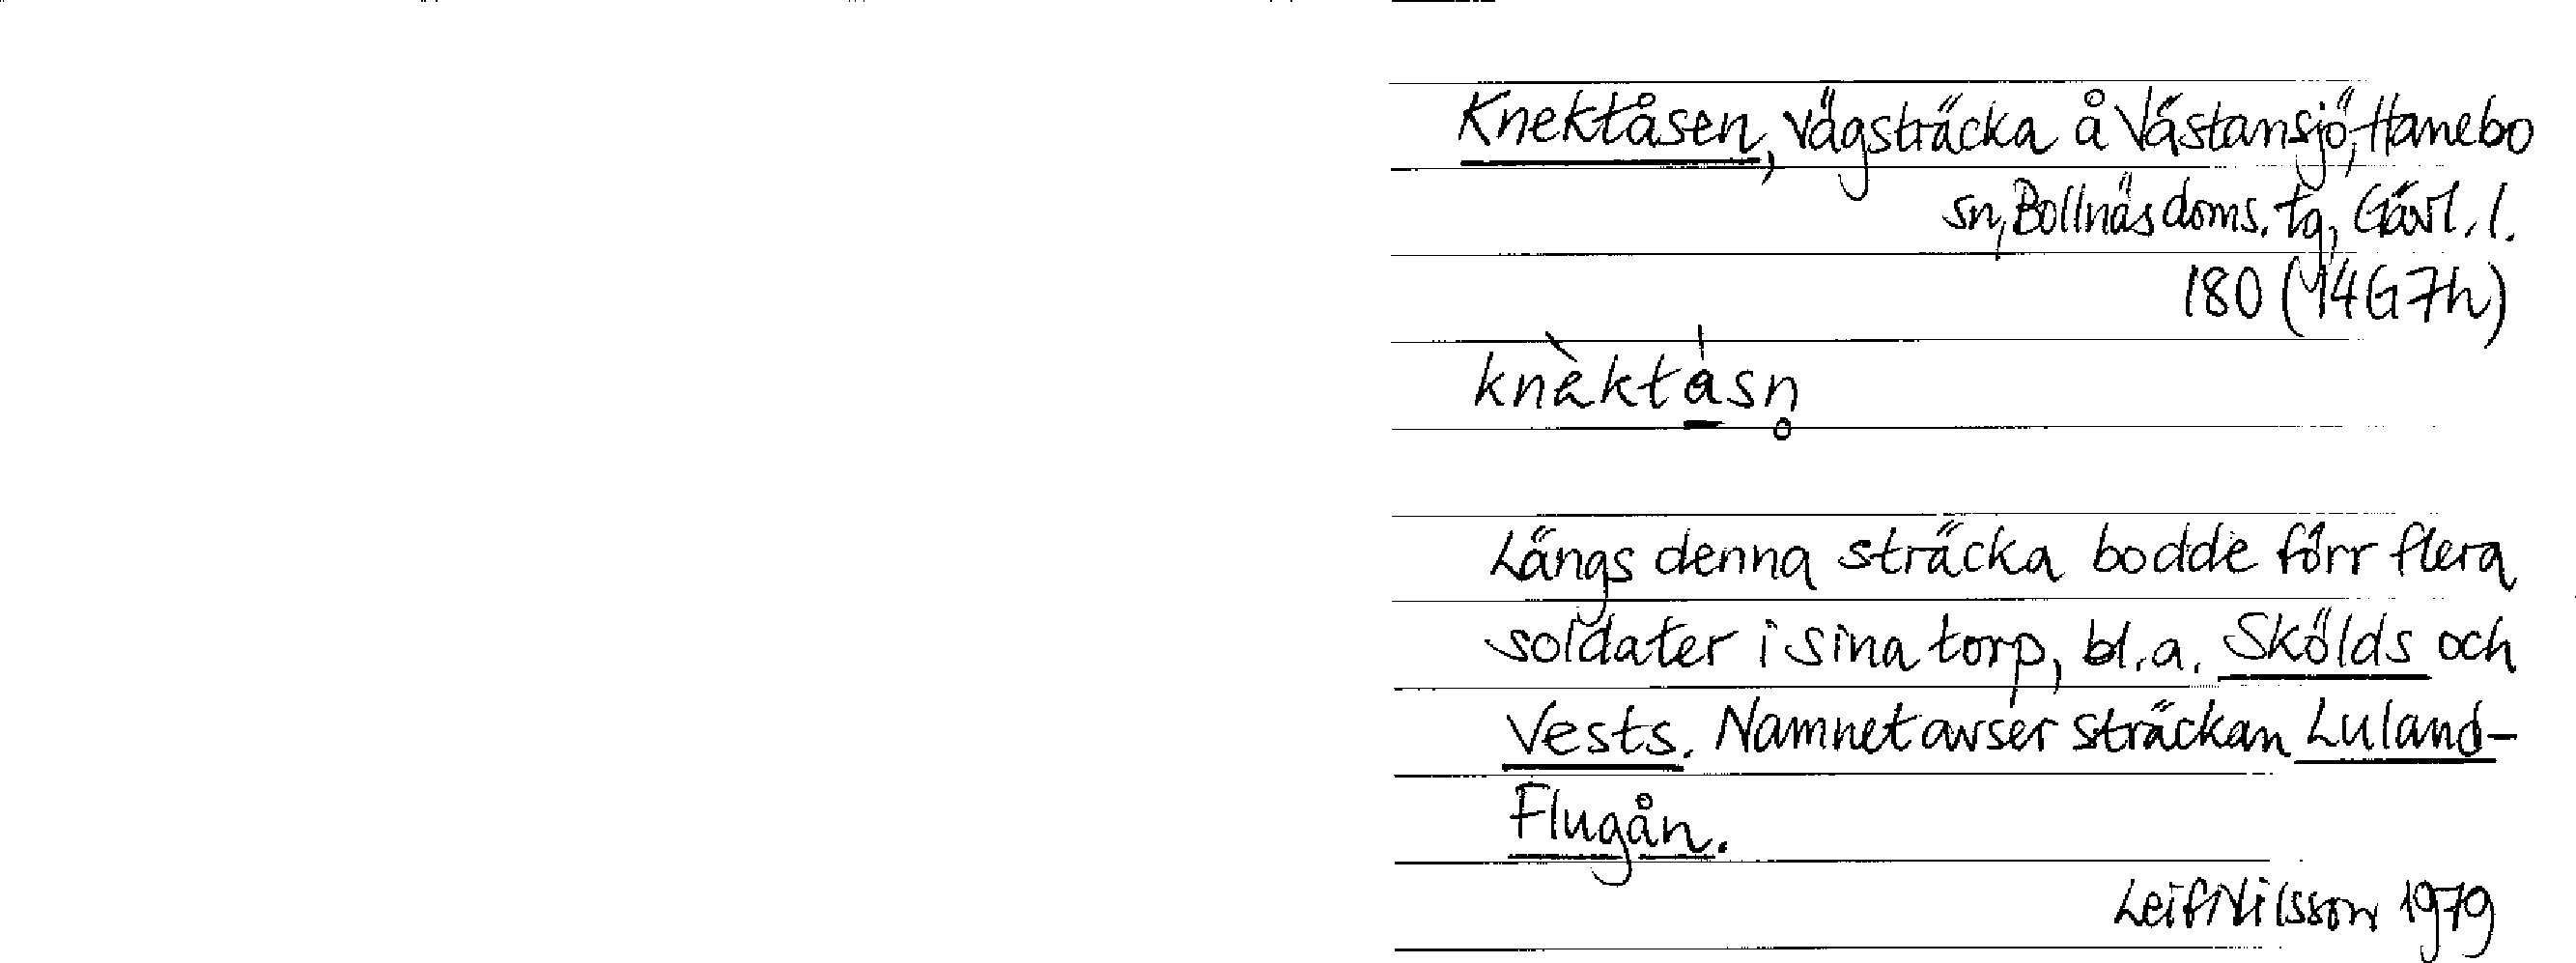 Knektåsen, vägsträcka å Västansjö, Hanebo
sn, Bollnäs doms. tg, Gävl. l.
180 (14G7h)
knèktásn̥
Längs denna sträcka bodde förr flera
soldater i sina torp, bl.a. Skölds och
Vests. Namnet avser sträckan Luland-
Flugån.
Leif Nilsson 1979